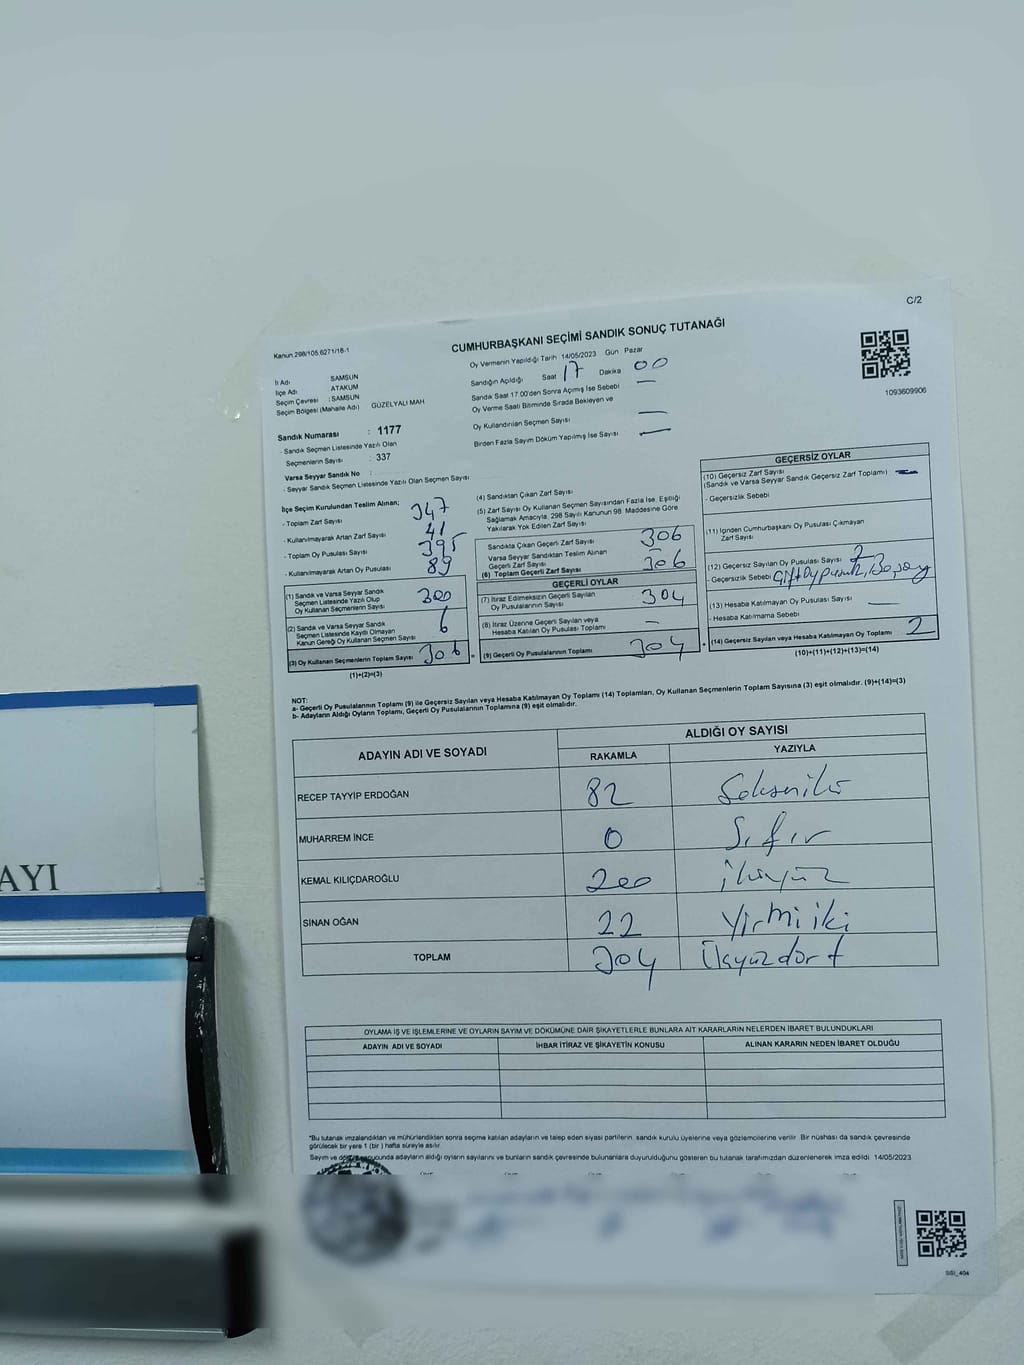 C/2
Kanun.298/105.6271/18-1
CUMHURBAŞKANI SEÇİMİ SANDIK SONUÇ TUTANAĞI
1093609906
İl Adı SAMSUN
İlçe Adı ATAKUM
Seçim Çevresi : SAMSUN
Seçim Bölgesi (Mahalle Adı) GÜZELYALI MAH
Sandık Numarası : 1177
- Sandık Seçmen Listesinde Yazılı Olan
Seçmenlerin Sayısı : 337
Varsa Seyyar Sandık No :
- Seyyar Sandık Seçmen Listesinde Yazılı Olan Seçmen Sayısı
Oy Vermenin Yapıldığı Tarih 14/05/2023 Gün Pazar
Sandığın Açıldığı Saat 17 Dakika 00
Sandık Saat 17:00'den Sonra Açımış İse Sebebi —
Oy Verme Saati Bitiminde Sırada Bekleyen ve
Oy Kullandırılan Seçmen Sayısı —
Birden Fazla Sayım Döküm Yapılmış İse Sayısı —
İlçe Seçim Kurulundan Teslim Alınan;
- Toplam Zarf Sayısı 347
- Kullanılmayarak Artan Zarf Sayısı 41
- Toplam Oy Pusulası Sayısı 395
- Kullanılmayarak Artan Oy Pusulası 89
(1) Sandık ve Varsa Seyyar Sandık
Seçmen Listesinde Yazılı Olup
Oy Kullanan Seçmenlerin Sayısı 300
(2) Sandık ve Varsa Seyyar Sandık
Seçmen Listesinde Kayıtlı Olmayan
Kanun Gereği Oy Kullanan Seçmen Sayısı 6
(3) Oy Kullanan Seçmenlerin Toplam Sayısı 306
(1)+(2)=(3)
(4) Sandıktan Çıkan Zarf Sayısı
(5) Zarf Sayısı Oy Kullanan Seçmen Sayısından Fazla İse, Eşitliği
Sağlamak Amacıyla, 298 Sayılı Kanunun 98. Maddesine Göre
Yakılarak Yok Edilen Zarf Sayısı
Sandıkta Çıkan Geçerli Zarf Sayısı 306
Varsa Seyyar Sandıktan Teslim Alınan
Geçerli Zarf Sayısı —
(6) Toplam Geçerli Zarf Sayısı 306
GEÇERLİ OYLAR
(7) İtiraz Edilmeksizin Geçerli Sayılan
Oy Pusulalarının Sayısı 304
(8) İtiraz Üzerine Geçerli Sayılan veya
Hesaba Katılan Oy Pusulası Toplamı —
= (9) Geçerli Oy Pusulalarının Toplamı 304
GEÇERSİZ OYLAR
(10) Geçersiz Zarf Sayısı
(Sandık ve Varsa Seyyar Sandık Geçersiz Zarf Toplamı) —
- Geçersizlik Sebebi
(11) İçinden Cumhurbaşkanı Oy Pusulası Çıkmayan
Zarf Sayısı
(12) Geçersiz Sayılan Oy Pusulası Sayısı 2
- Geçersizlik Sebebi
(13) Hesaba Katılmayan Oy Pusulası Sayısı —
- Hesaba Katılmama Sebebi
+ (14) Geçersiz Sayılan veya Hesaba Katılmayan Oy Toplamı 2
(10)+(11)+(12)+(13)=(14)
NOT:
a- Geçerli Oy Pusulalarının Toplamı (9) ile Geçersiz Sayılan veya Hesaba Katılmayan Oy Toplamı (14) Toplamları, Oy Kullanan Seçmenlerin Toplam Sayısına (3) eşit olmalıdır. (9)+(14)=(3)
b- Adayların Aldığı Oyların Toplamı, Geçerli Oy Pusulalarının Toplamına (9) eşit olmalıdır.
ADAYIN ADI VE SOYADI ALDIĞI OY SAYISI
RAKAMLA YAZIYLA
RECEP TAYYİP ERDOĞAN 82 Seksen iki
MUHARREM İNCE 0 Sıfır
KEMAL KILIÇDAROĞLU 200 ikiyüz
SİNAN OĞAN 22 Yirmi iki
TOPLAM 304 Üçyüzdört
OYLAMA İŞ VE İŞLEMLERİNE VE OYLARIN SAYIM VE DÖKÜMÜNE DAİR ŞİKAYETLERLE BUNLARA AİT KARARLARIN NELERDEN İBARET BULUNDUKLARI
ADAYIN ADI VE SOYADI İHBAR İTİRAZ VE ŞİKAYETİN KONUSU ALINAN KARARIN NEDEN İBARET OLDUĞU
*Bu tutanak imzalandıktan ve mühürlendikten sonra seçime katılan adayların ve talep eden siyasi partilerin sandık kurulu üyelerine veya gözlemcilerine verilir. Bir nüshası da sandık çevresinde
görülecek bir yere 1 (bir) hafta süreyle asılır.
Sayım ve döküm sonucunda adayların aldığı oyların sayılarını ve bunların sandık çevresinde bulunanlara duyurulduğunu gösteren bu tutanak tarafımızdan düzenlenerek imza edildi. 14/05/2023
AYI